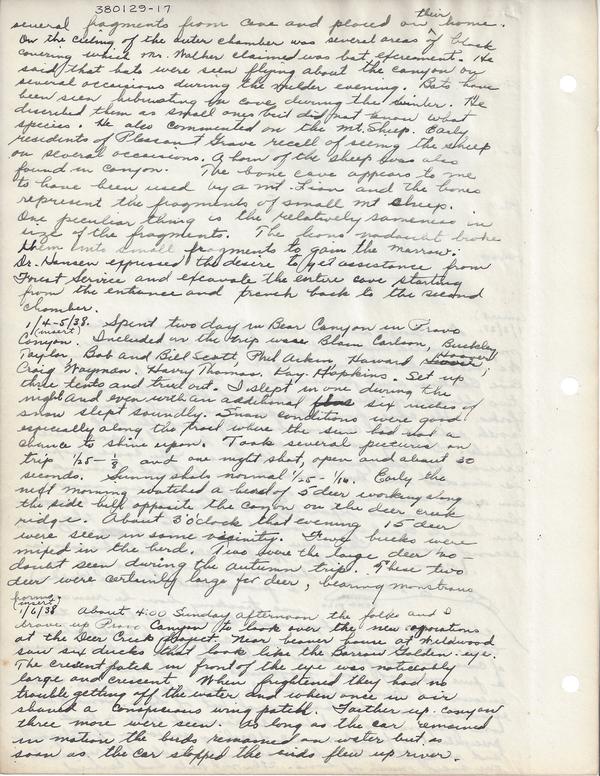 380129-17
several fragments from cave and placed on their home.
On the cieling of the outer chamber was several areas of black
covering which Mr. Walker claimed was bat excrement. He
said that bats were seen flying about the canyon on
several occasions during the milder evening. Bats have
been seen hibernating in cave during the winter. He
discribed them as small ones but did not know what
species. He also commented on the Mt. Sheep. Early
residents of Pleasant Grove recall of seeing the sheep
on several occassions. A horn of the sheep was also
found in canyon. The bone cave appears to me
to have been used by a mt. Lion and the bones
represent the fragments of small mt sheep.
One peculiar thing is the relatively sameness in
size of the fragments. The lions nodoubt broke
them into small fragments to gain the marrow.
Dr. Hansen expressed the desire to get assistance from
Forest Service and excavate the entire cave starting
from the entrance and back to the second
chamber.
1/4-5/38. Spent two day in Bear Canyon in Provo
Canyon. (insert) Included on the trip were Blain Carlson, Buckley
Taylor, Bob and Bill Scott, Phil Howard Hoover,
Craig Wayman, Harry Thomas, Hopkins. Set up
three tents and tried out. I slept in one during the
night and even with an additional six inches of
snow slept soundly. Snow conditions were good
especially along the trail where the sun had not a
chance to shine upon. Took several pictures on
trip 1/25 - and one night shot, open and about 30
seconds. Sunny shots normal 1/25 - Early the
next morning watched a head of 5 deer working along
the side hill opposite the canyon on the deer creek
ridge. About 3 o'clock that evening 15 deer
were seen in same vicinity. Few bucks were
mixed in the herd. Two were the large deer no-
doubt seen during the autumn trip. These two
deer were certainly large for deer, bearing monstrous
(insert)
1/6/38 About 4:00 Sunday afternoon the folks and I
drove up Provo Canyon to look over the new operations
at the Deer Creek project. Near beaver house at Wildwood
saw six ducks that look like the Barrow Golden-eye.
The cresent patch in front of the eye was noticeably
large and crescent. When frightened they had no
trouble getting off the water and when once in air
showed a conspicious wing patch. Farther up canyon
three more were seen. As long as the car remained
in motion the birds remained on water but as
soon as the car stopped the birds flew up river.